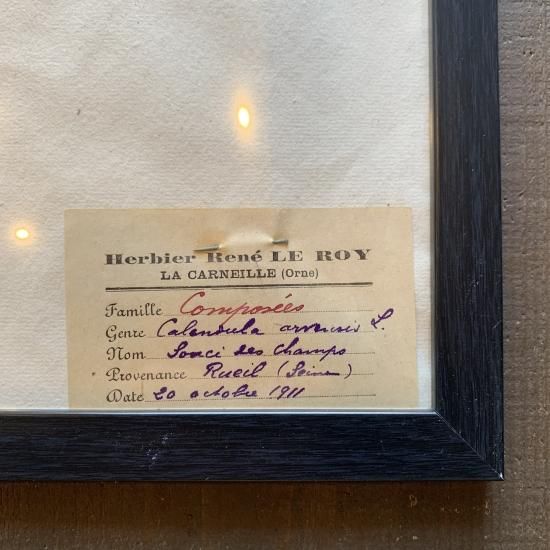 Herbier René LE ROY
LA CARNEILLE (Orne)
Famille Composées
Genre Calendula arvensis L.
Nom Souci des champs
Provenance Rueil (Seine)
Date 20 octobre 1911